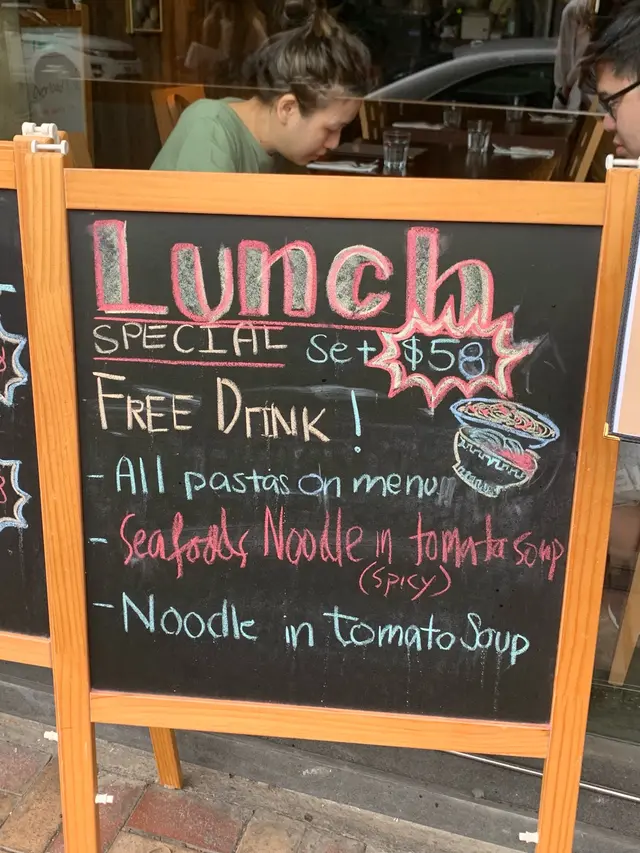 Lunch
SPECIAL Set $58
FREE DRINK !
- All pastas on menu
- Seafoods Noodle in tomato soup
(Spicy)
- Noodle in tomato Soup